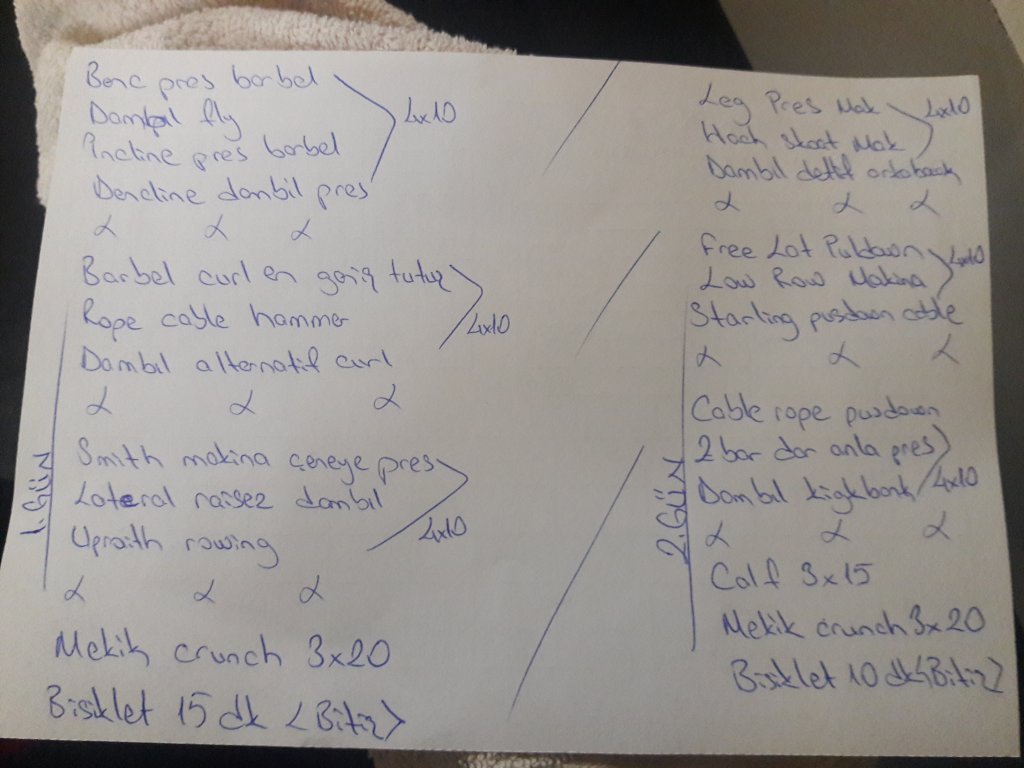 Benc pres barbel
Dambıl fly
4x10
İncline pres barbel
Dencline dambıl pres
Barbel curl en geniş tutuş
Rope cable hammer
4x10
Dambıl alternatif curl
1.GÜN
Smith makina enseye pres
Lateral raisez dambıl
Upraith rowing
4x10
Mekik crunch 3x20
Bisiklet 15 dk <Bitiş>
Leg Pres Mak
4x10
Hack skoat Mak
Dambıl detlif
Free Lat Puldown
Low Row Makina
4x10
Starling pusdown cable
2.GÜN
Cable rope pusdown
2 bar dar pres
Dambıl kigkbank
4x10
Calf 3x15
Mekik crunch 3x20
Bisiklet 10 dk <Bitiş>